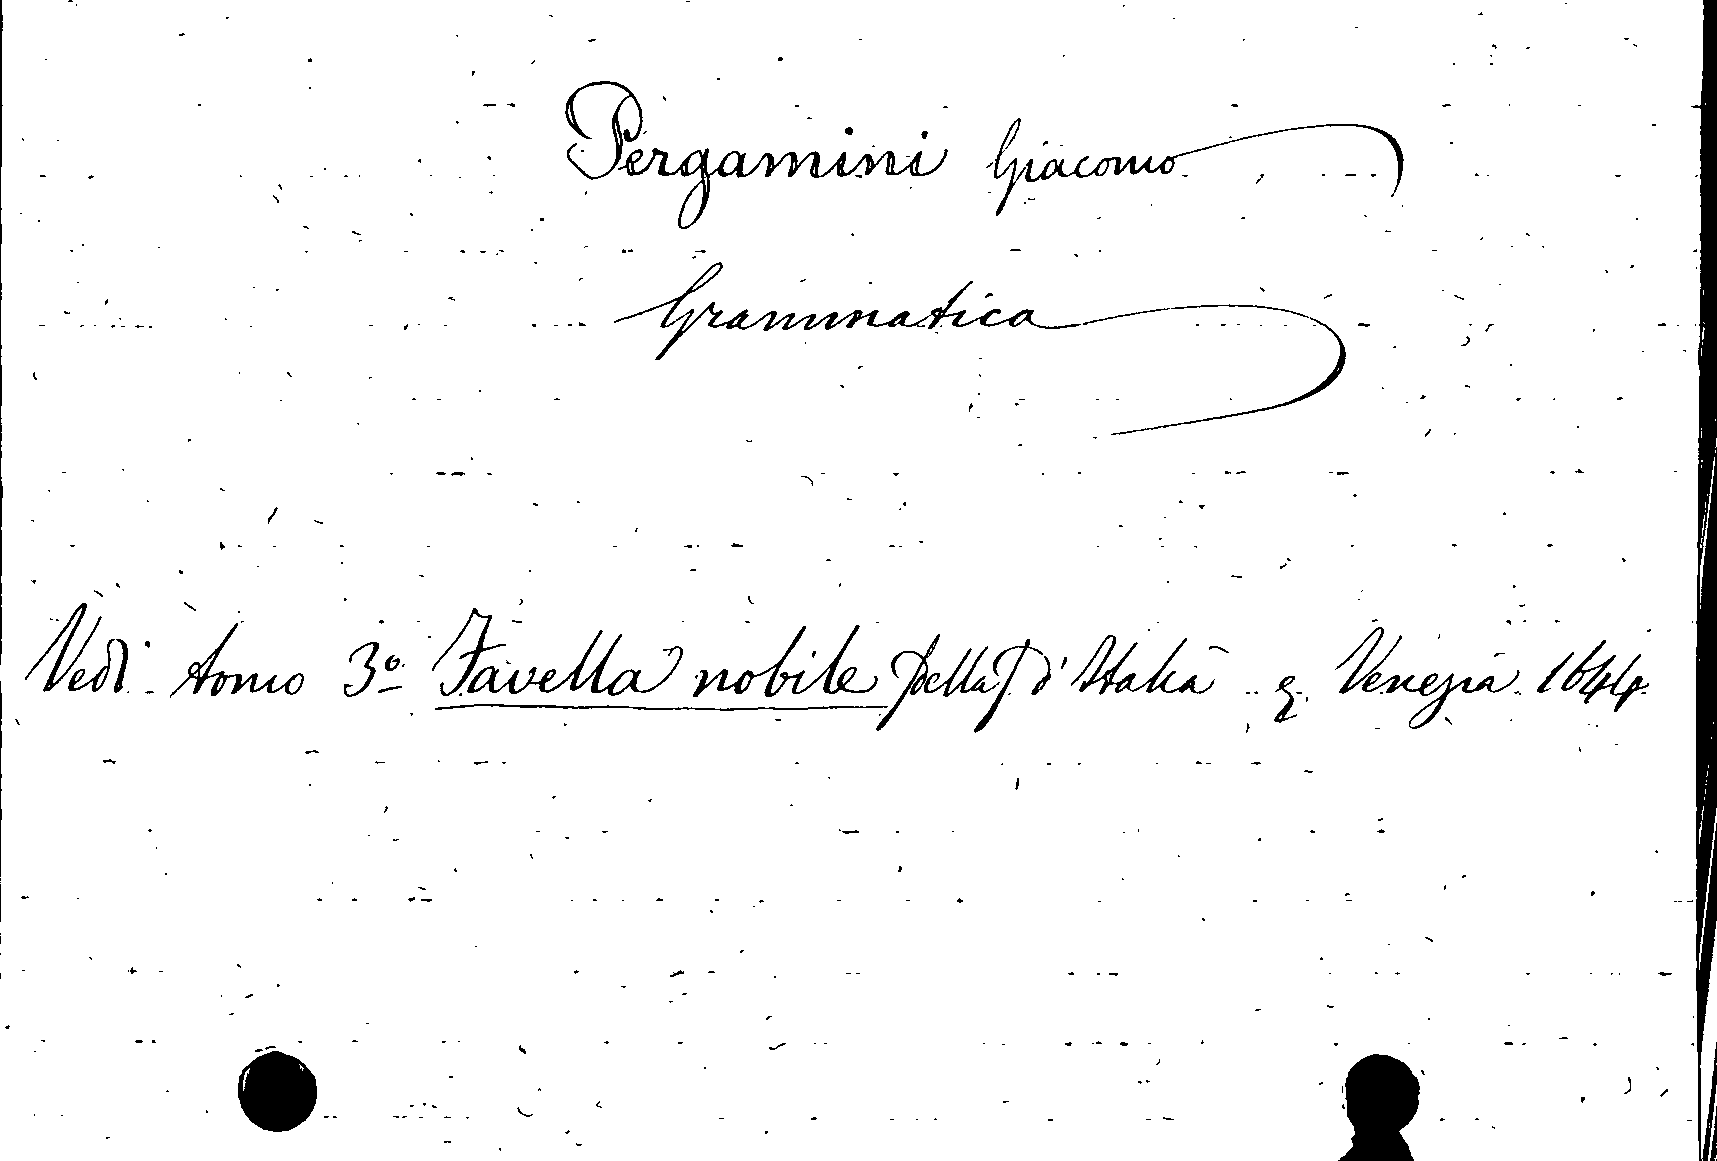 Pergamini Giacomo
Grammatica
Vedi tomo 3º Favella nobile [della] d'Italia Venezia 1644